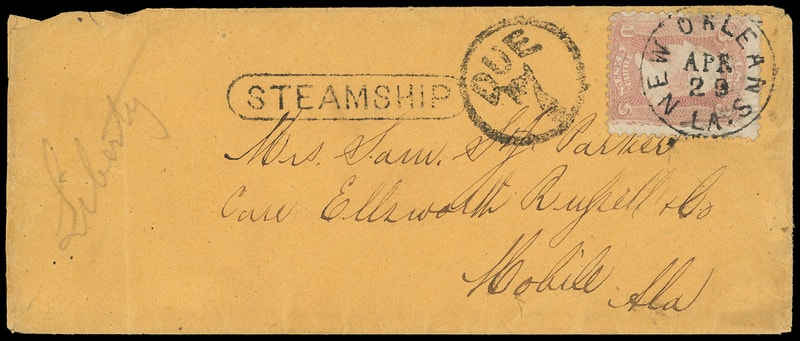 STEAMSHIP
DUE
NEW ORLEANS LA.
APR
29
Liberty
Mrs. Sam. Parker
Care Ellsworth Russell & Co
Mobile Ala